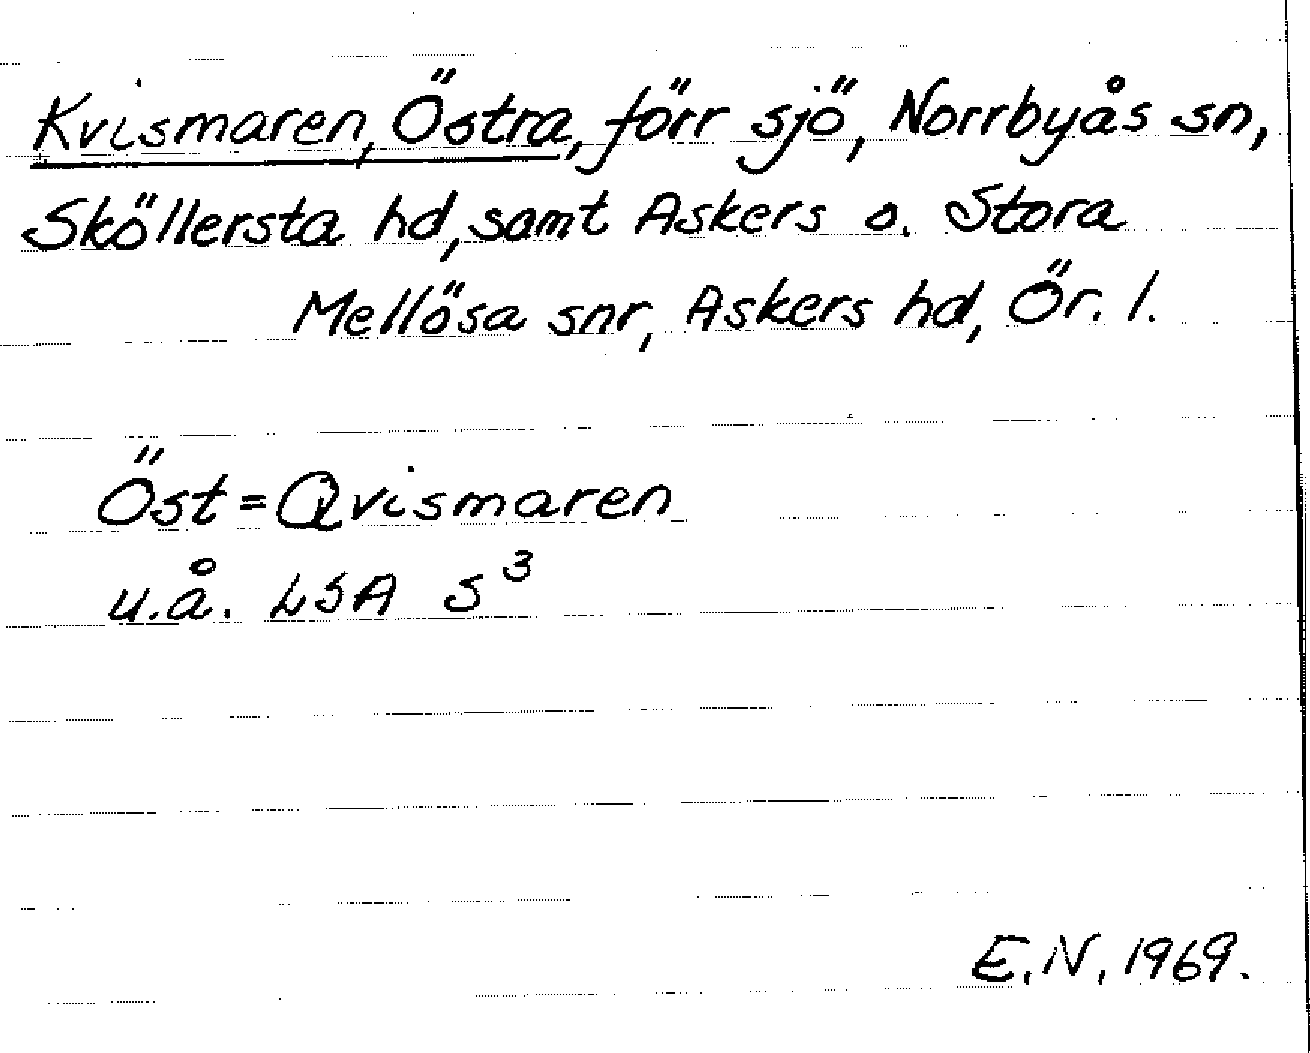 Kvismaren, Östra, förr sjö, Norrbyås sn,
Sköllersta hd, samt Askers o. Stora
Mellösa snr, Askers hd, Ör. l.
Öst=Qvismaren
u.å. LSA S³
E.N. 1969.